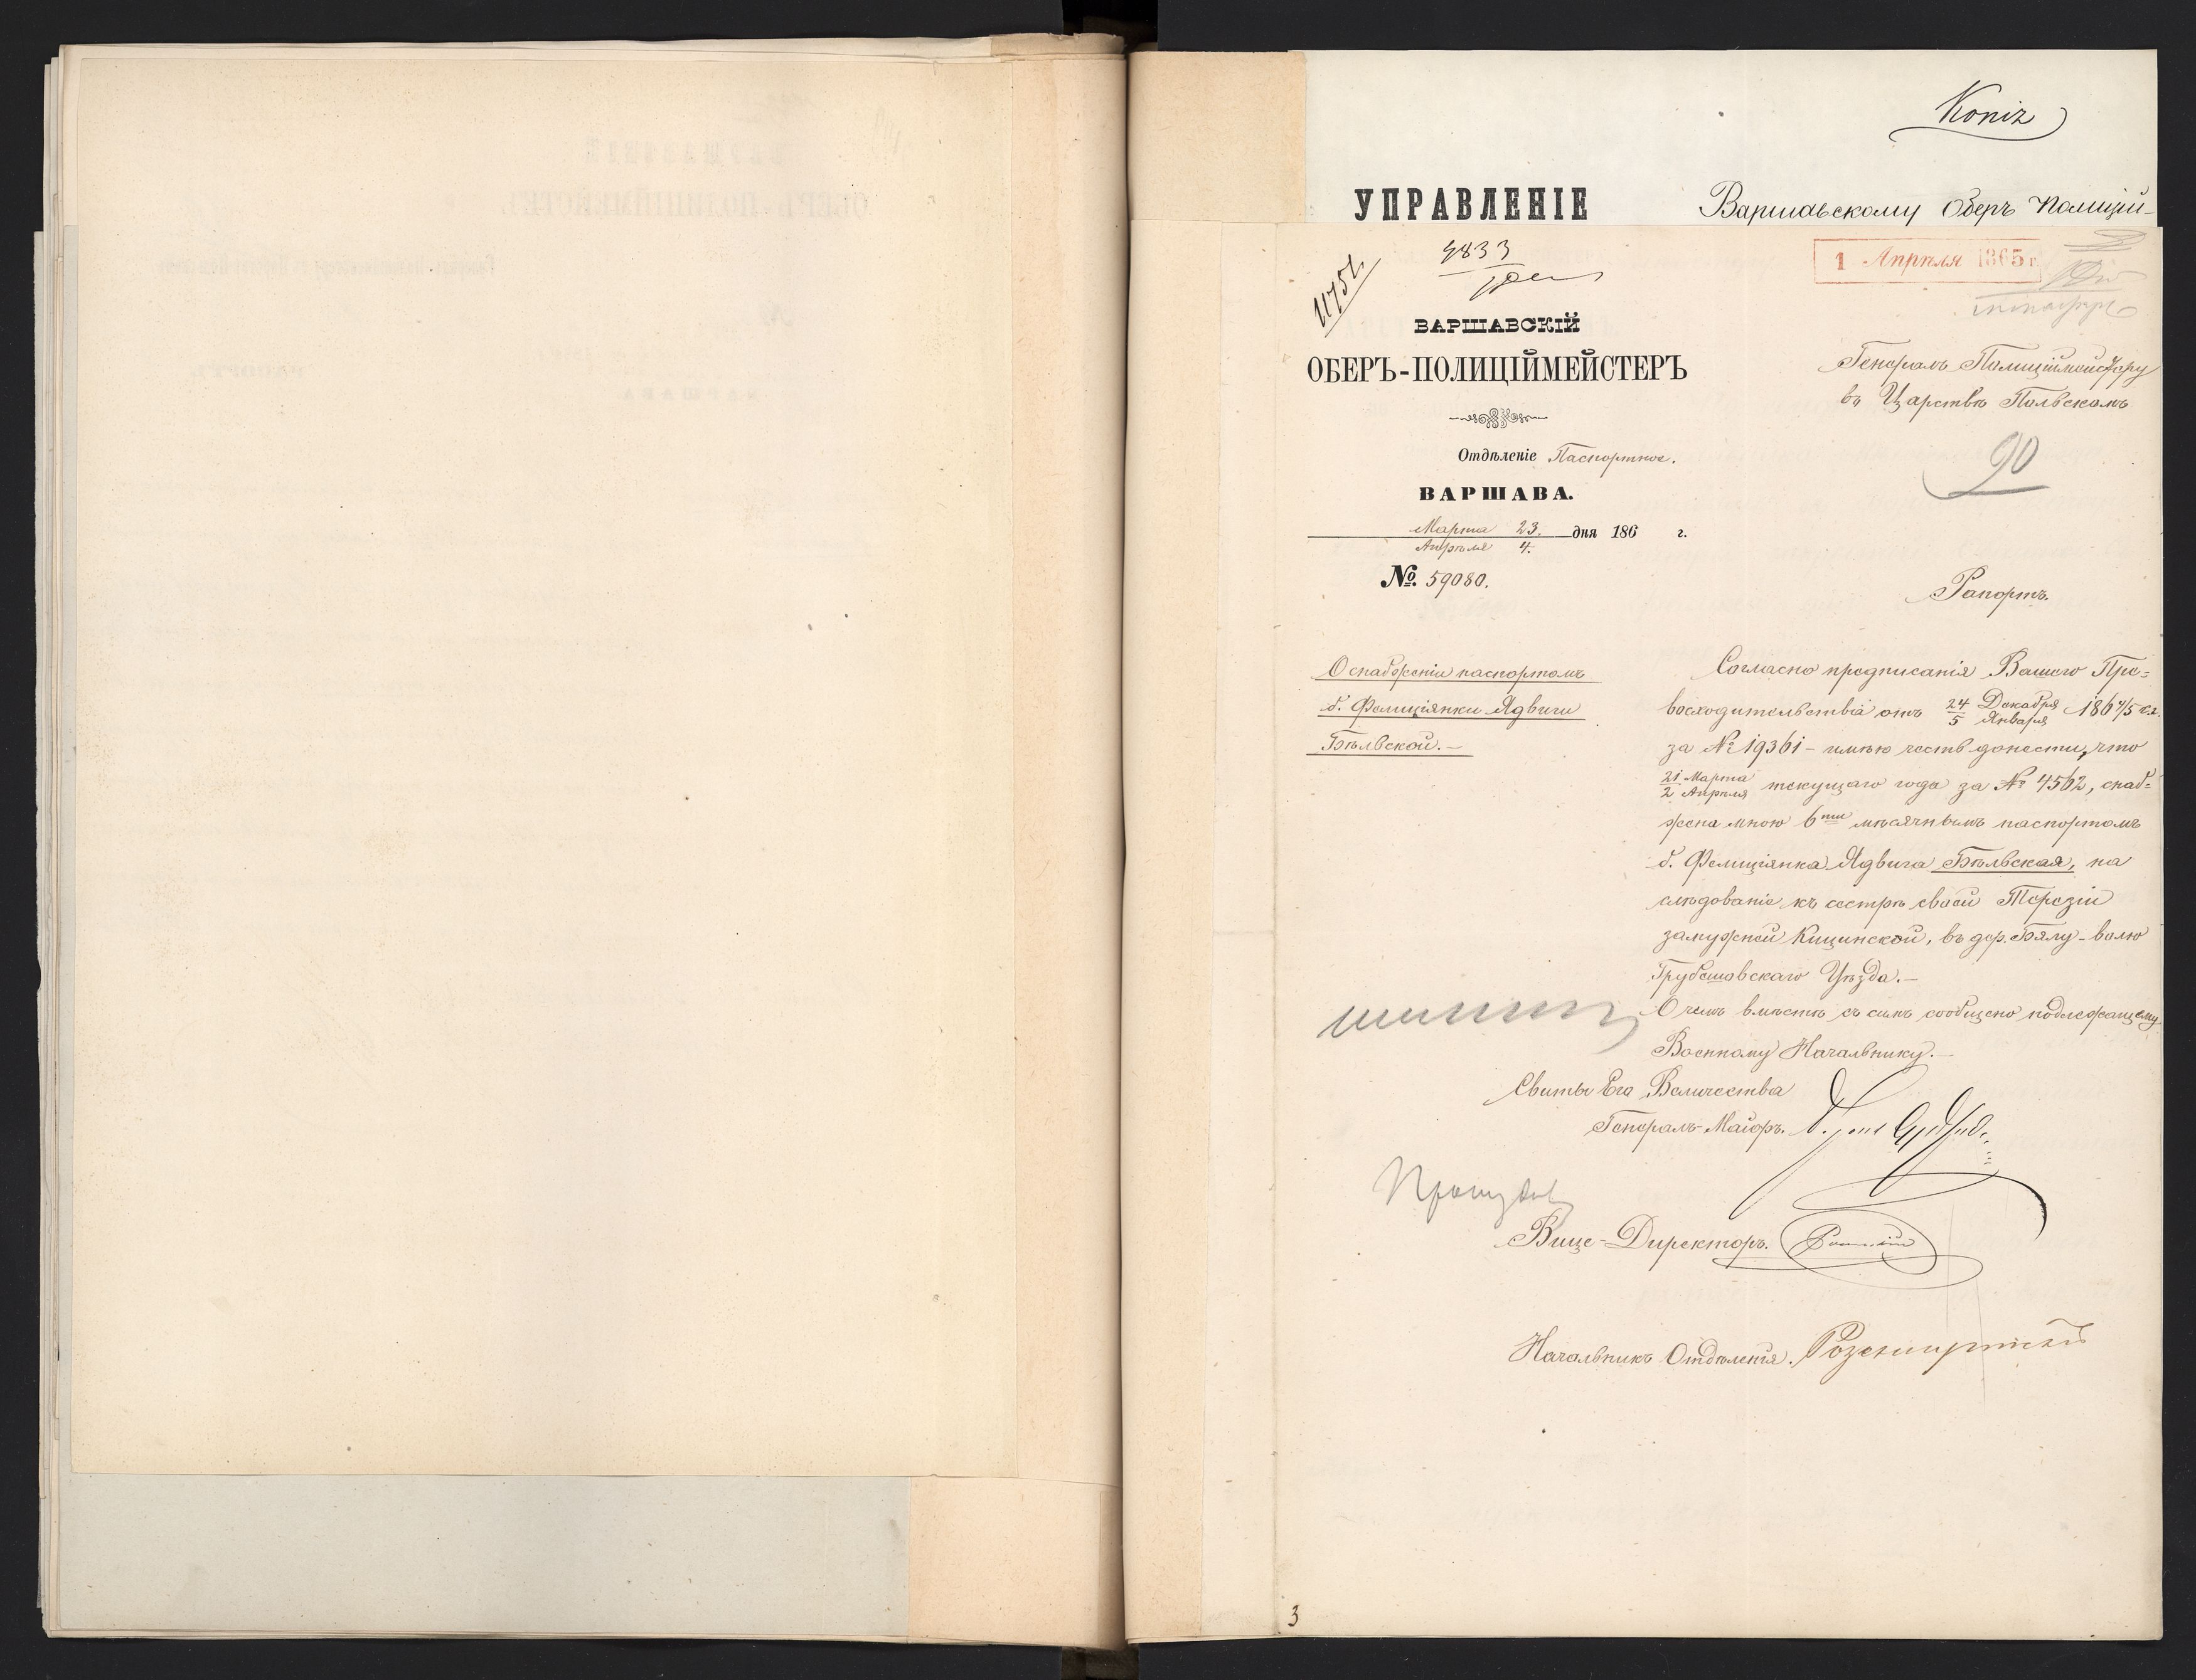 Копія
УПРАВЛЕНІЕ
Варшавскому Оберъ Полиціи-
4833
11752
1 Апрѣля 1865 г.
ВАРШАВСКІЙ
ОБЕРЪ-ПОЛИЦІЙМЕЙСТЕРЪ
Отдѣленіе Паспортное.
ВАРШАВА.
Марта 23. дня 186 г.
Апрѣля 4.
№. 59080.
Генералъ Полиціймейстеру
въ Царствѣ Польскомъ
90
Рапортъ.
О снабженіи паспортомъ
б. Фелиціянки Ядвиги
Бѣльской.—
Согласно предписанія Вашего Пре=
восходительства отъ 24/5 Декабря/Января 1864/5 г.
за № 19361 – имѣю честь донести, что
21/2 Марта/Апрѣля текущаго года за № 4562, снаб=
жена мною 6ти мѣсячнымъ паспортомъ
б. Фелиціянка Ядвига Бѣльская, на
слѣдованіе къ сестрѣ своей Терезіи
замужней Кицинской, въ дер. Бялу-волю
Грубешовскаго Уѣзда.—
О чемъ вмѣстѣ съ симъ сообщено подлежащему
Военному Начальнику.—
Свиты Его Величества
Генералъ-Маіоръ.
Вице-Директоръ.
Начальникъ Отдѣленія.
3